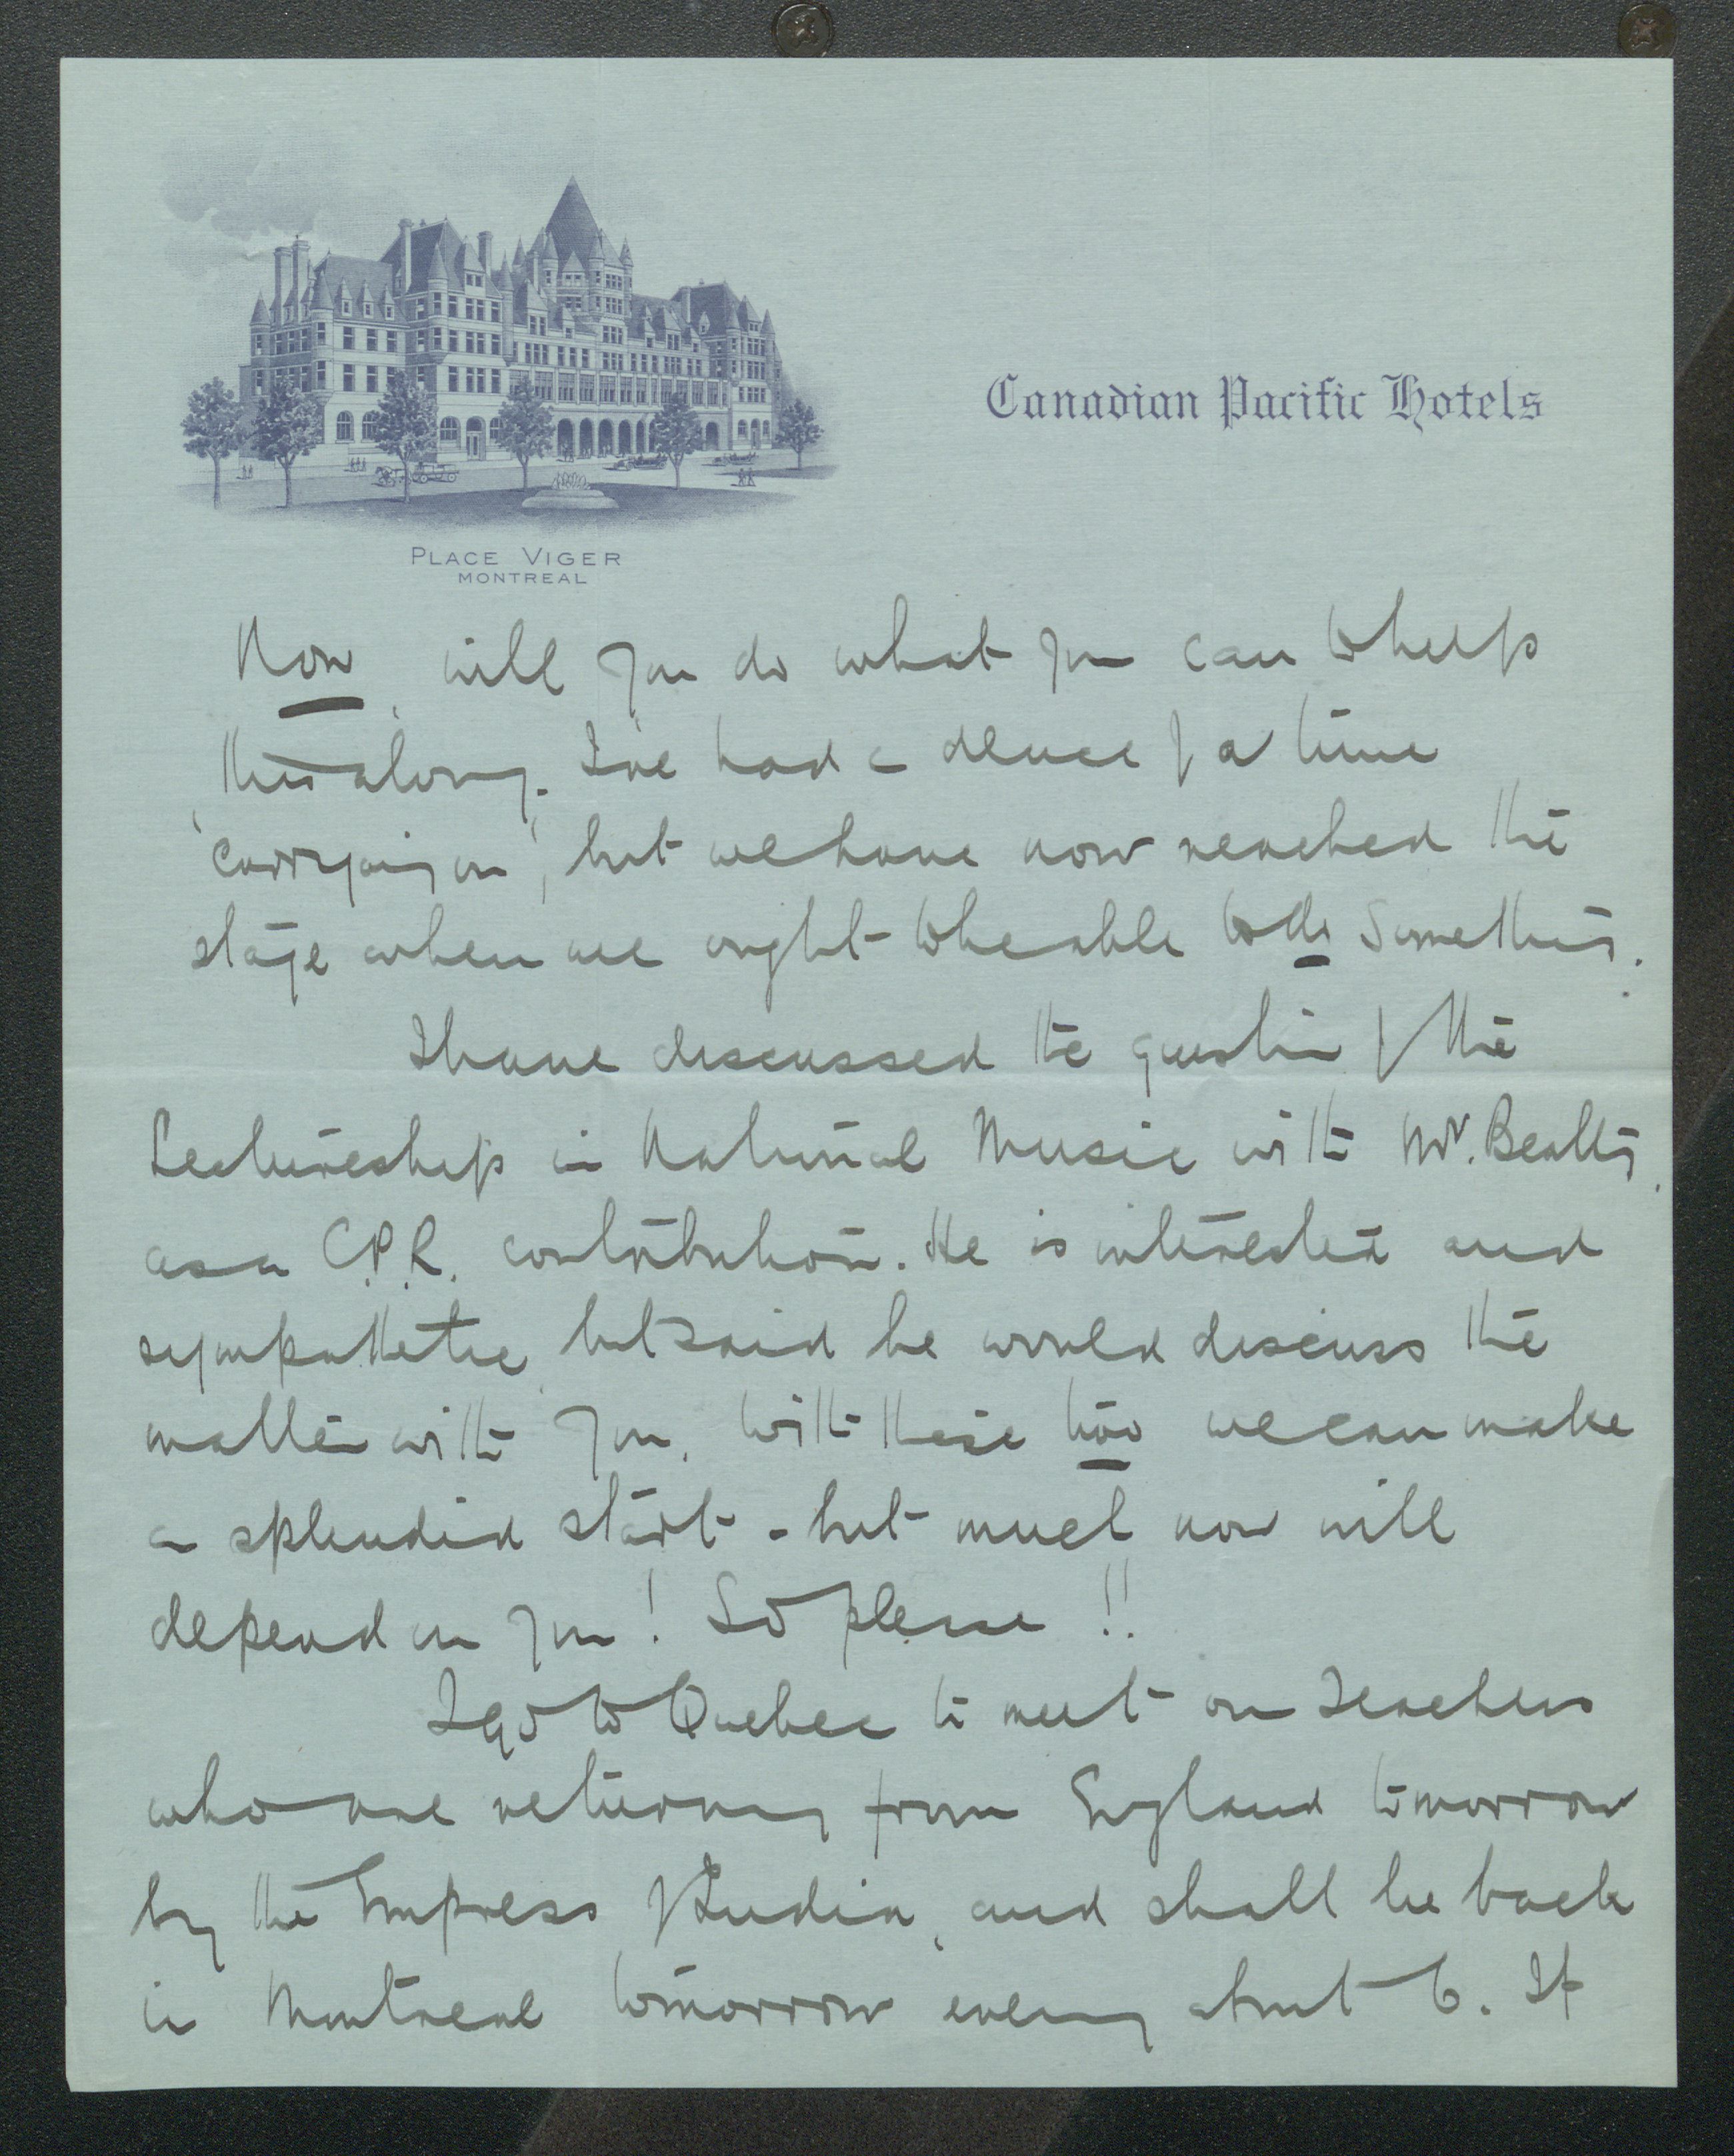 Canadian Pacific Hotels
PLACE VIGER
MONTREAL
Now, will you do what you can to help
this along. I've had a deuce of a time
'carrying on', but we have now reached the
stage when we ought to be able to do something.
I have discussed the question of the
Lectureship in National Music with Mr. Beatty,
as a C.P.R. contribution. He is interested and
sympathetic, but said he would discuss the
matter with you. With these two we can make
a splendid start - but much now will
depend on you! So please!!
I go to Quebec to meet our Teachers
who are returning from England tomorrow
by the Empress of India, and shall be back
in Montreal tomorrow evening about 6. If